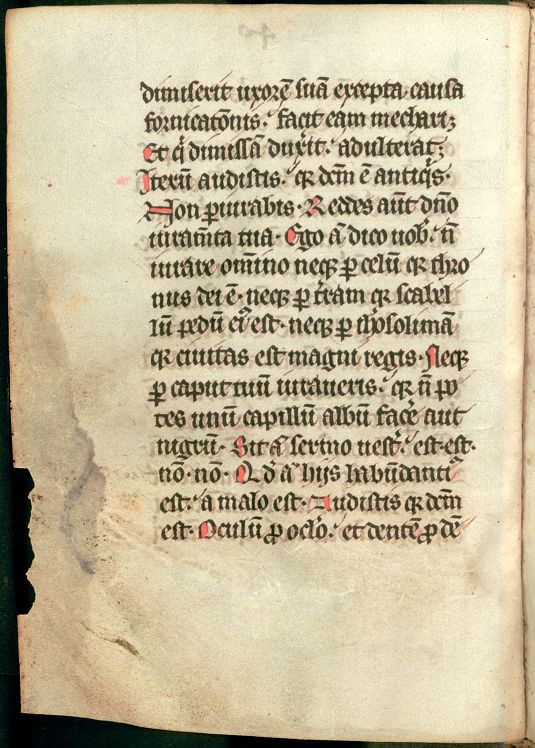 dimiserit uxorē suā excepta causa
fornicatōnis. facit eam mechari;
Et q̄ dimissā duxit. adulterat;
Iterū audistis. qr dc̄m ē antiqͥs.
Non ꝑiurabis. Reddes aūt dn̄o
iuram̄ta tua. Ego ā dico uob̛. n̄
iurare omnino neqꝫ ꝑ celū qr thro
nus dei ē. neqꝫ ꝑ t̄ram qr scabel
lū pedū eiꝰ est. neqꝫ ꝑ ih̄rosolimā
qr ciuitas est magni regis. Neqꝫ
ꝑ caput tuū iuraueris. qr n̄ po
tes unū capillū albū fac̄e aut
nigrū. Sit ā sermo uest̄. est. est.
nō. nō. Qd̄ ā hijs habūdantiꝰ
est. a malo est. Audistis qr dc̄m
est. Oculū ꝓ oclo. et dentē ꝓ dē